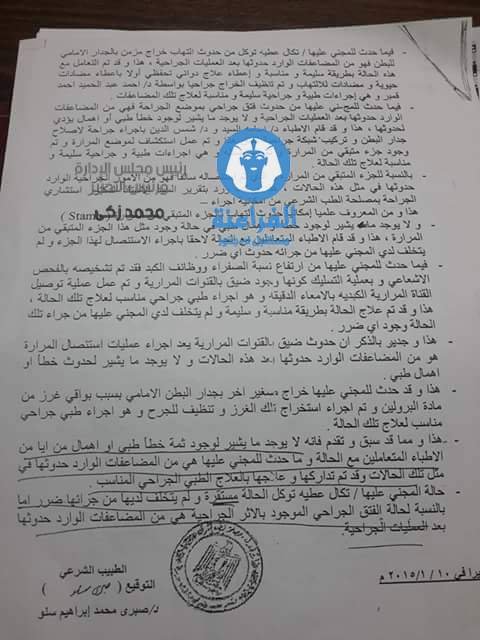 - فيما حدث للمجني عليها / تكال عطيه توكل من حدوث التهاب خراج مزمن بالجدار الامامي
للبطن فهو من المضاعفات الوارد حدوثها بعد العمليات الجراحية ، هذا و قد تم التعامل مع
هذه الحالة بطريقة سليمة و مناسبة و إعطاء علاج دوائي تحفظي أولا باعطاء مضادات
حيوية و مضادات للالتهاب و تم تنظيف الخراج جراحيا بواسطة د/ احمد عبد الحميد احمد
قمبر و هي إجراءات طبية و جراحية سليمة و مناسبة لعلاج تلك المضاعفات .
- فيما حدث للمجني عليها من حدوث فتق جراحي بموضع الجراحة فهي من المضاعفات
الوارد حدوثها بعد العمليات الجراحية و لا يوجد ما يشير لوجود خطأ طبي أو اهمال يؤدي
لحدوثها ، هذا و قد قام الاطباء د/ السيد و د/ شمس الدين بأجراء جراحة لاصلاح
جدار البطن و تركيب شبكة و تم عمل استكشاف لموضع المرارة و تم
وجود جزء متبقي من المرارة هي اجراءات طبية و جراحية سليمة و
مناسبة لعلاج تلك الحالة .
- بالنسبة للجزء المتبقي من المرارة فهو من الأمور الجراحية الوارد
حدوثها في مثل هذا الحالات بتقرير استشاري
الجراحة بمصلحة الطب الشرعي اجراء -
هذا و من المعروف علميا إمكان الجزء المتبقي (Stam
- و لا يوجد ماء يشير لوجود في حالة وجود مثل هذا الجزء المتبقي من
المرارة ، هذا و قد قام الاطباء المتعاملين مع الحالة لاحقا باجراء الاستئصال لهذا الجزء و لم
يتخلف لدي المجني عليها من جرائه حدوث اي ضرر .
- فيما حدث للمجني عليها من ارتفاع نسبة الصفراء ووظائف الكبد فقد تم تشخيصه بالفحص
الاشعاعي و بعملية التسليك كونها وجود ضيق بالقنوات المرارية و تم عمل عملية توصيل
القناة المرارية الكبديه بالامعاء الدقيقه و هو اجراء طبي جراحي مناسب لعلاج تلك الحالة ،
هذا و قد تم علاج الحالة بطريقة مناسبة و سليمة و لم يتخلف لدي المجني عليها من جراء تلك
الحالة وجود اي ضرر .
- هذا و جدير بالذكر ان حدوث ضيق بالقنوات المرارية بعد اجراء عمليات استئصال المرارة
هو من المضاعفات الوارد حدوثها بعد هذه الحالات و لا يوجد ما يشير لحدوث خطأ او
اهمال طبي .
- هذا و قد حدث للمجني عليها خراج صغير اخر بجدار البطن الامامي بسبب بواقي غرز من
مادة البرولين و تم اجراء استخراج تلك الغرز و تنظيف للجرح و هو اجراء طبي جراحي
مناسب لعلاج تلك الحالة .
- هذا و مما قد سبق و تقدم فانه لا يوجد ما يشير لوجود ثمة خطأ طبي او اهمال من ايا من
الاطباء المتعاملين مع الحالة و ما حدث للمجني عليها هي من المضاعفات الوارد حدوثها في
مثل تلك الحالات وقد تم تداركها و علاجها بالعلاج الطبي الجراحي المناسب .
- حالة المجني عليها / تكال عطيه توكل الحالة مستقرة و لم يتخلف لديها من جرائها ضرر اما
بالنسبة لحالة الفتق الجراحي الموجود بالاثر الجراحية هي من المضاعفات الوارد حدوثها
بعد العمليات الجراحية.
في ١٠ / ١ / ٢٠١٥ م
الطبيب الشرعي
التوقيع ( )
د/ صبرى محمد إبراهيم سلو
الفراعنة
رئيس مجلس الإدارة
ورئيس التحرير
محمد زكى